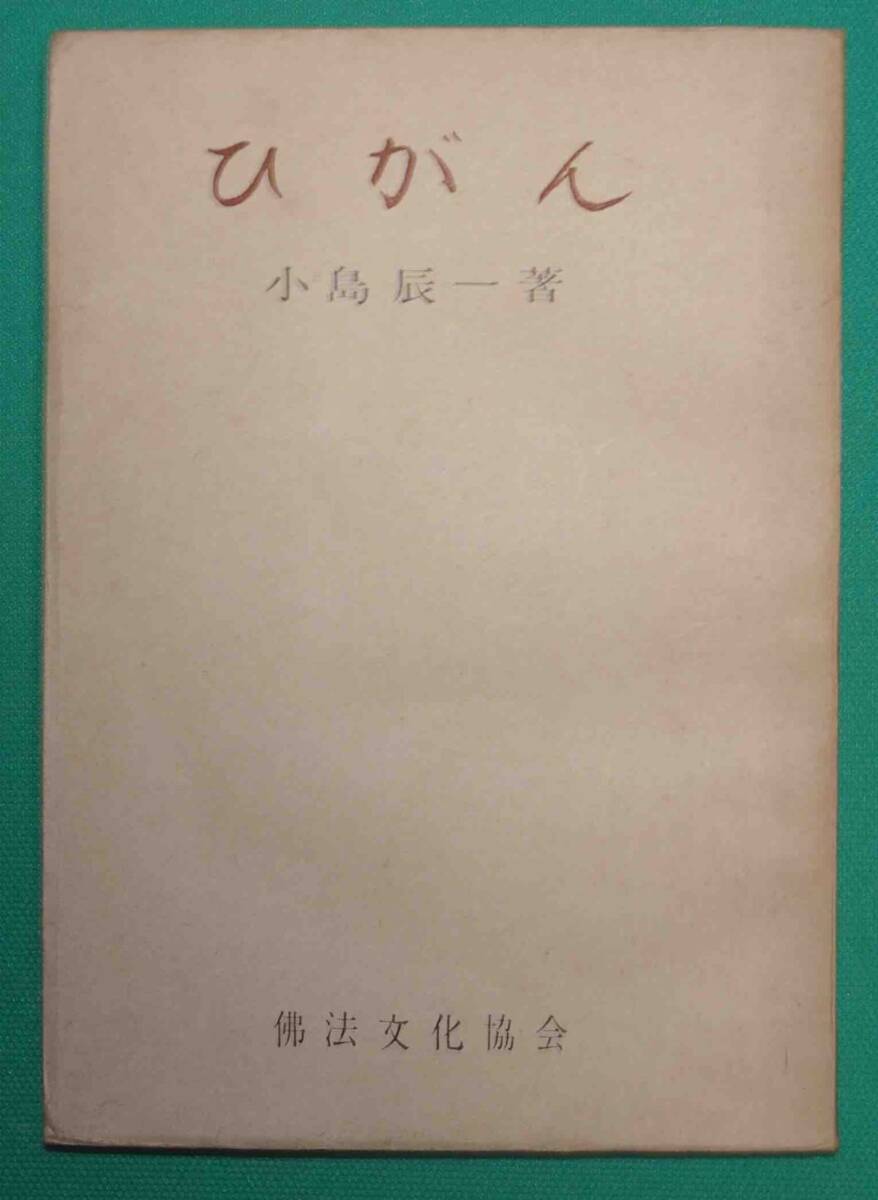 ひがん
小島辰一著
佛法文化協会